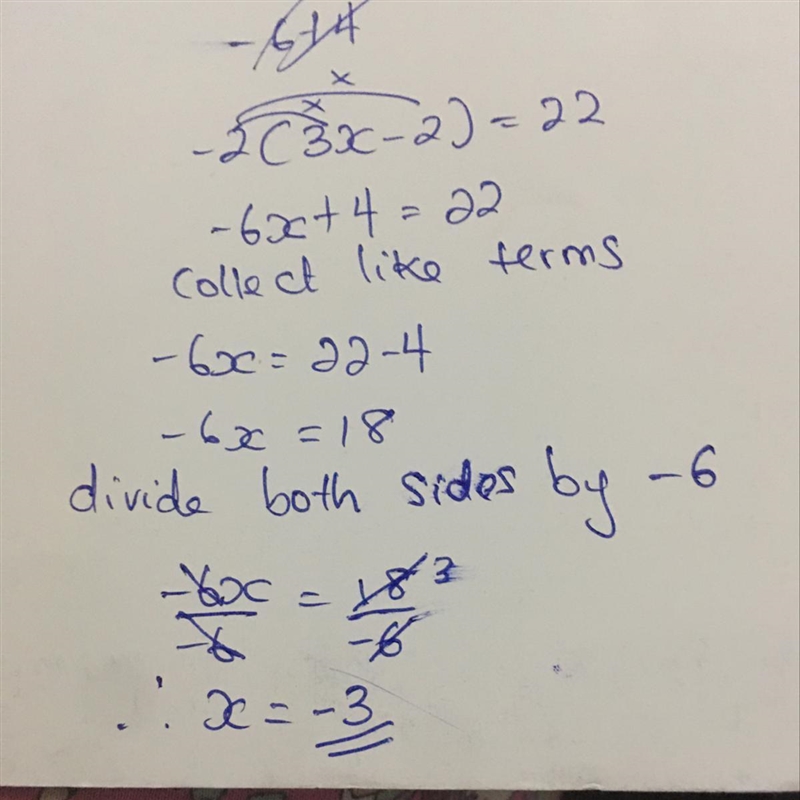 -6+4
x
x
-2(3x-2)=22
-6x+4=22
collect like terms
-6x=22-4
-6x=18
divide both sides by -6
-6x/-6 = 18 3/-6
∴ x=-3